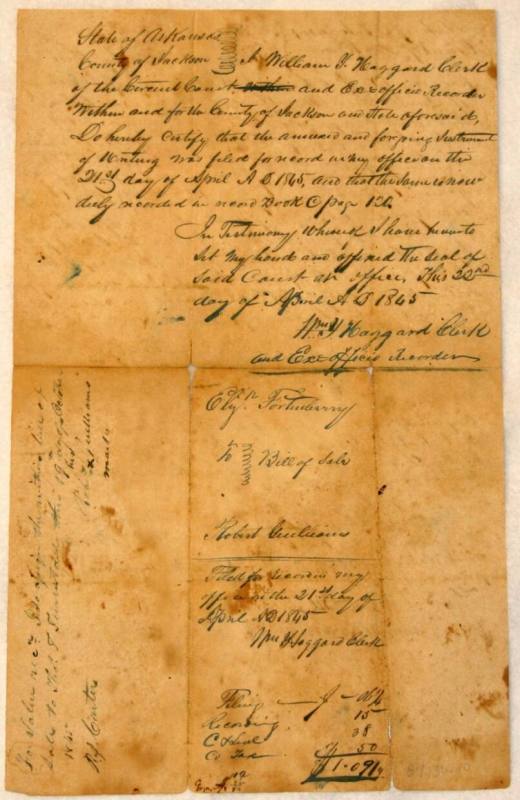 State of Arkansas
County of Jackson I William Y. Haggard Clerk
of the Circuit Court within and Exofficio Recorder
Within and for the County of Jackson and State aforesaid,
Do hereby certify that the annexed and forgoing Instrument
of Writing was filed for record in my office on the
21st day of April A D 1845, and that the same is now
duly recorded in record Book C page 126
In Testimony Whereof I have hereunto
set my hand and affixed the seal of
said Court at office, This 22nd
day of April A D 1845
Wm Y Haggard Clerk
and Exofficio Recorder
Fortenberry
to Bill of Sale
Robert
Filed for record in my
office on the 21st day of
April A D 1845
Wm Y Haggard Clerk
Filing
Recording
C & Seal 38
Co Tax 50
For Value I assign the within bill of
Sale to this 19
1845
his
Robert x Williams
mark